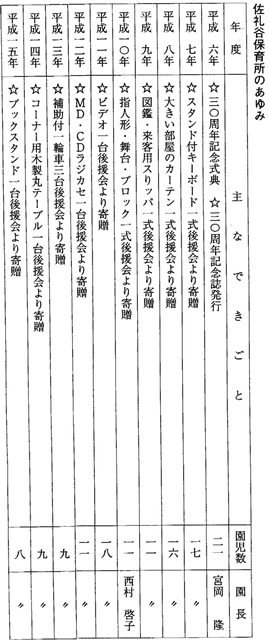 佐礼谷保育所のあゆみ
年度 主なできごと 園児数 園長
平成六年 ☆三〇周年記念式典 ☆三〇周年記念誌発行 二一 宮岡 隆
平成七年 ☆スタンド付キーボード一式後援会より寄贈 一七 〃
平成八年 ☆大きい部屋のカーテン一式後援会より寄贈 一六 〃
平成九年 ☆図鑑・来客用スリッパ一式後援会より寄贈 一一 〃
平成一〇年 ☆指人形・舞台・ブロック一式後援会より寄贈 一一 西村 啓子
平成一一年 ☆ビデオ一台後援会より寄贈 一八 〃
平成一二年 ☆MD・CDラジカセ一台後援会より寄贈 一一 〃
平成一三年 ☆補助付一輪車三台後援会より寄贈 九 〃
平成一四年 ☆コーナー用木製丸テーブル一台後援会より寄贈 九 〃
平成一五年 ☆ブックスタンド一台後援会より寄贈 八 〃